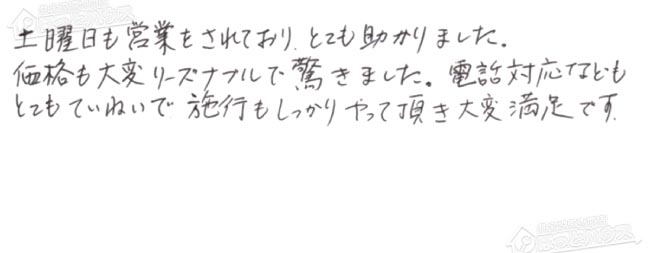 土曜日も営業をされており、とても助かりました。
価格も大変リーズナブルで驚きました。電話対応なども
とてもていねいで施行もしっかりやって頂き大変満足です.